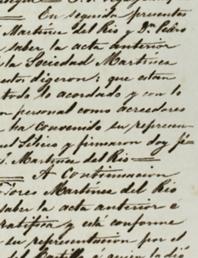 En segunda presentes
Martinez del Rio y Dn. Pedro
saber la acta anterior
la Sociedad Martinez
digeron; que estan
todo lo acordado y con lo
on personal como acreedores
ha convenido su represen
y firmaron doy fé
Martinez del Rio
A Continuacion
Martinez del Rio
saber la acta anterior é
ratifica y está conforme
su representacion por el